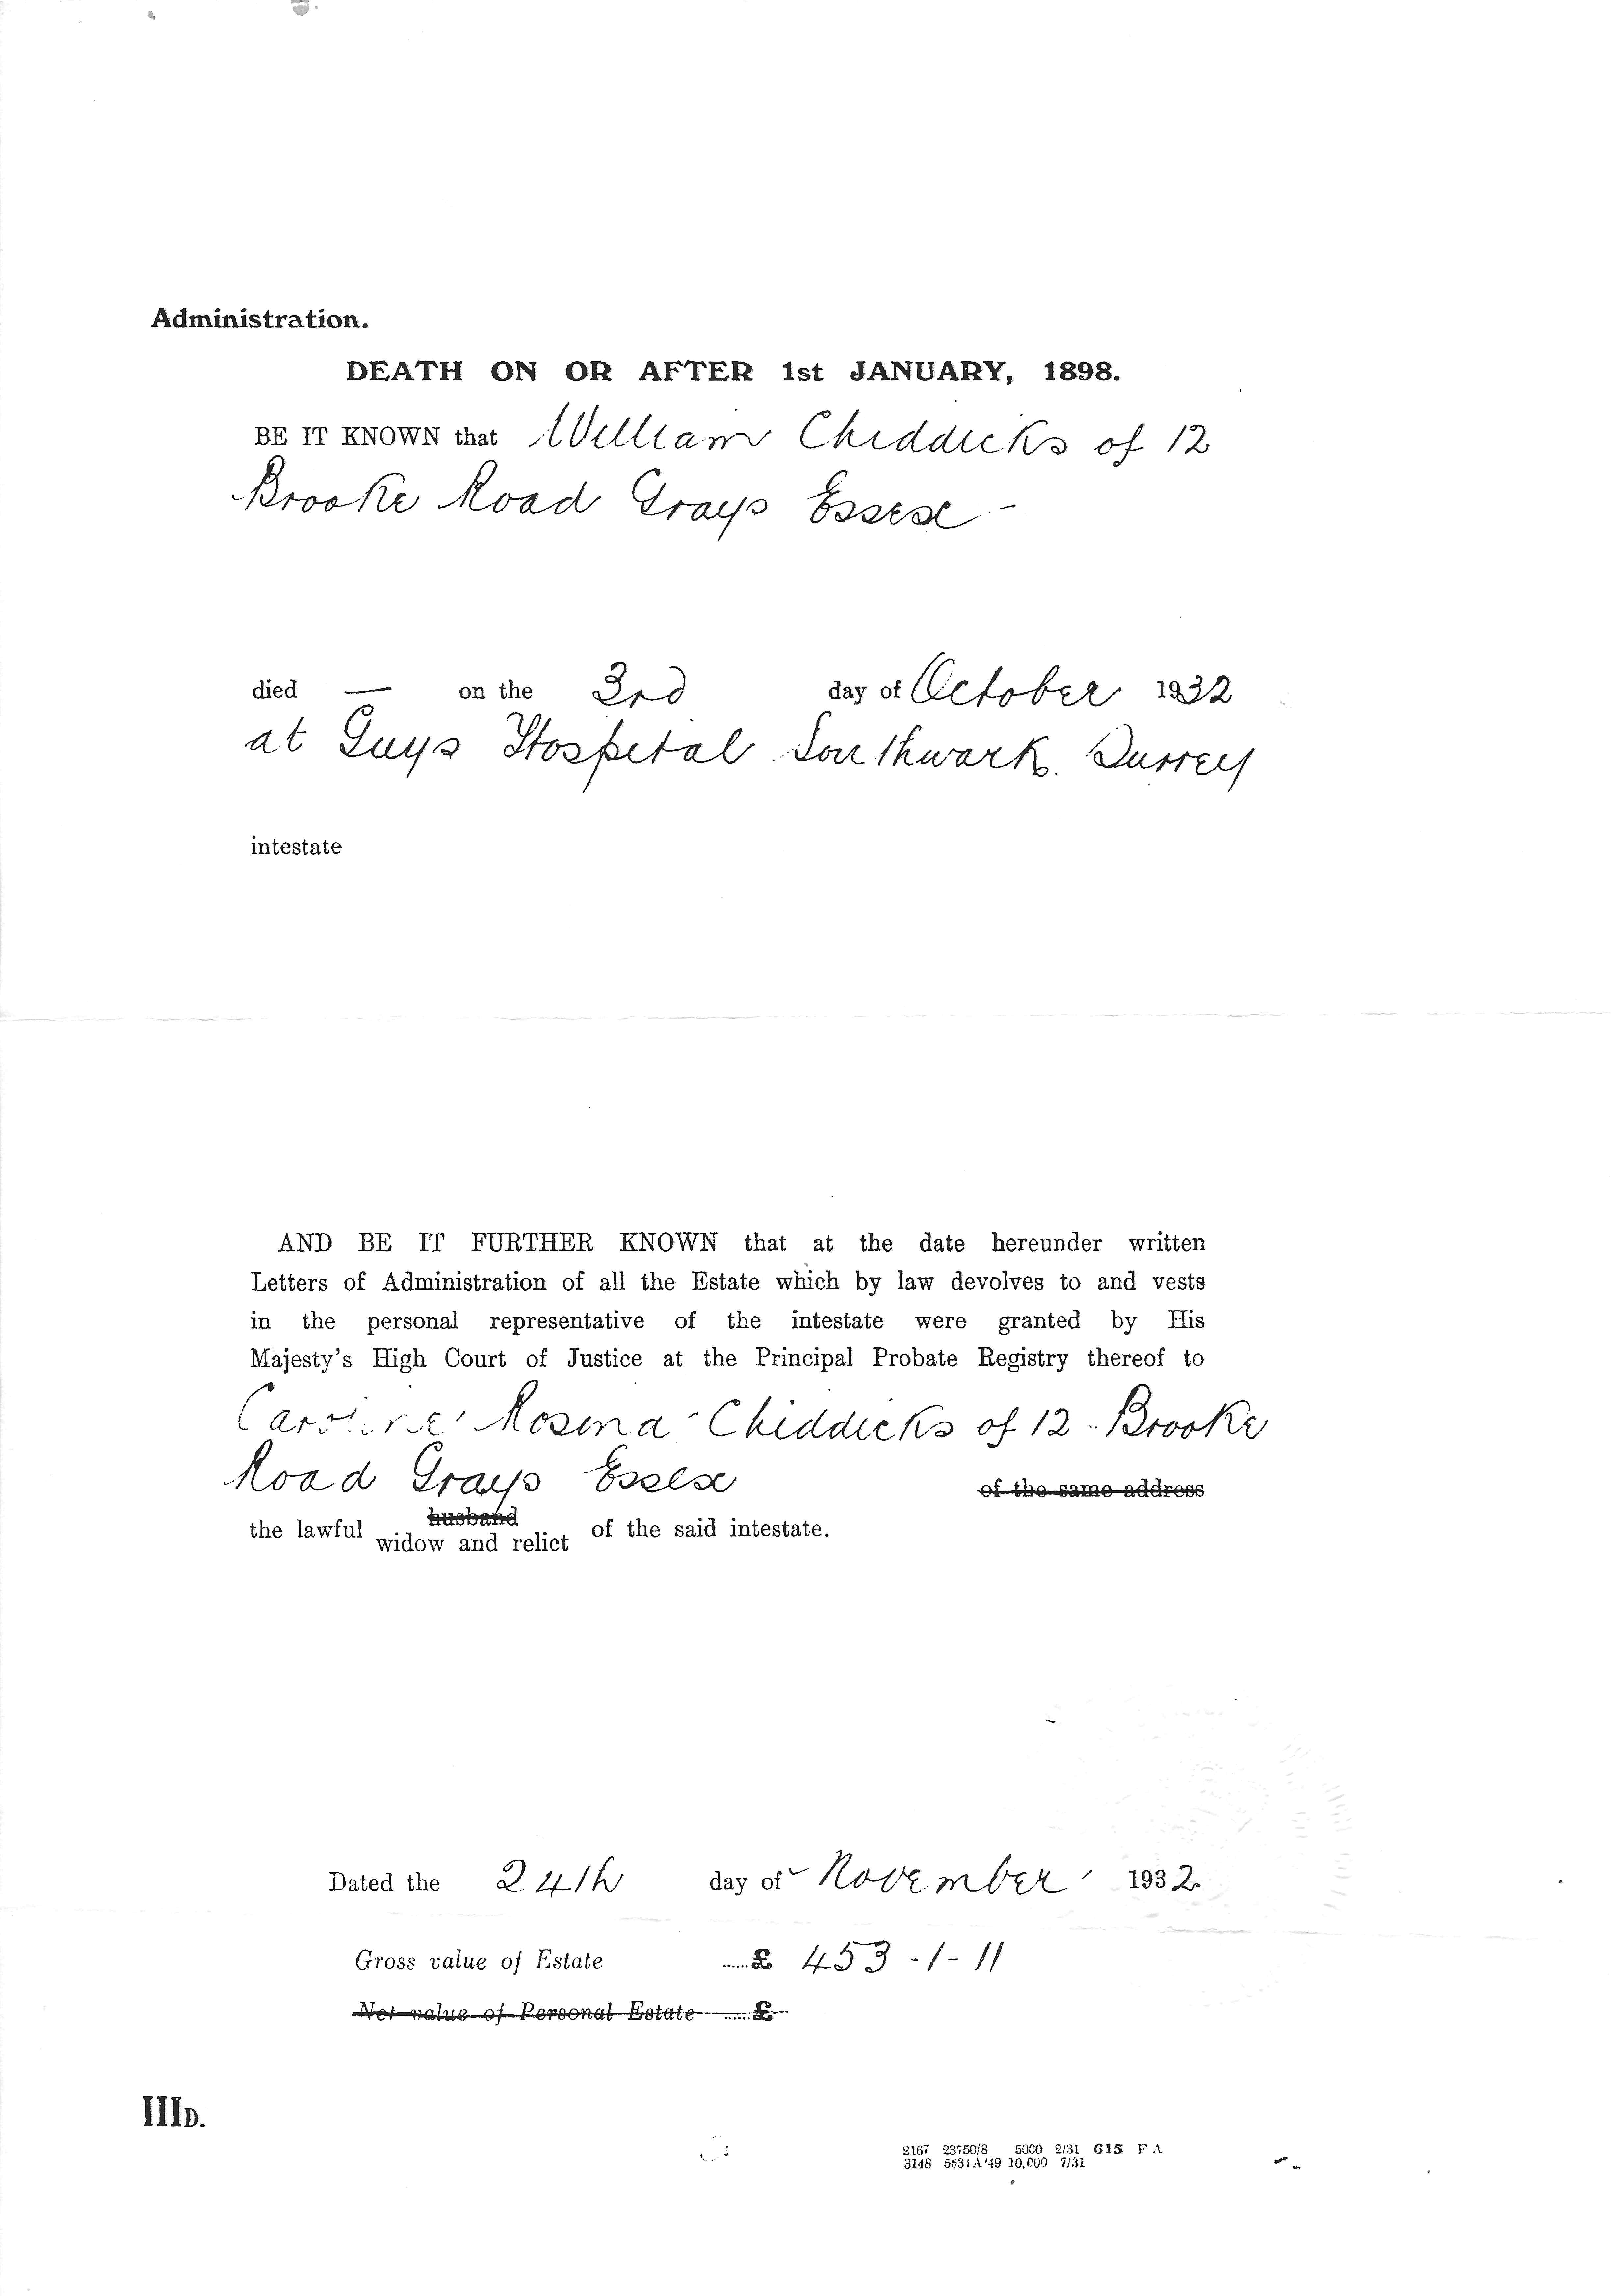 Administration.
DEATH ON OR AFTER 1st JANUARY, 1898.
BE IT KNOWN that William Chiddicks of 12
Brooke Road Grays Essex -
died — on the 3rd day of October 1932
at Guys Hospital Southwark Surrey
intestate
AND BE IT FURTHER KNOWN that at the date hereunder written
Letters of Administration of all the Estate which by law devolves to and vests
in the personal representative of the intestate were granted by His
Majesty's High Court of Justice at the Principal Probate Registry thereof to
Caroline Rosina Chiddicks of 12 Brooke
Road Grays Essex of the same address
husband
the lawful widow and relict of the said intestate.
Dated the 24th day of November 1932
Gross value of Estate ......£ 453-1-11
Net value of Personal Estate ......£
IIID.
2167 23750/8 5000 2/31 615 F A
3148 10,000 7/31